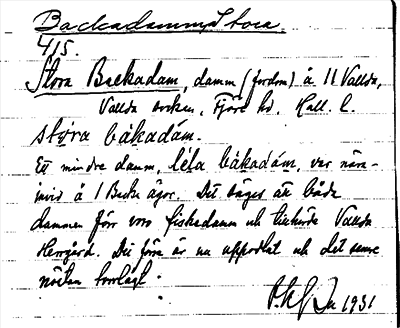 Backadamm, Stora.
4/5.
Stora Backadam, damm (fordom) å 11 Vallda,
Vallda socken, Fjäre hd, Hall. l.
stóra bákadám.
Ett mindre damm, lẹ́la bákadám, var när-
invid å 1 Backa ägor. Det säges att båda
dammen förr voro fiskedamm och tillhörde Vallda
Herrgård. Den förra är nu uppodlat och det senare
nästan torrlagt.
1931